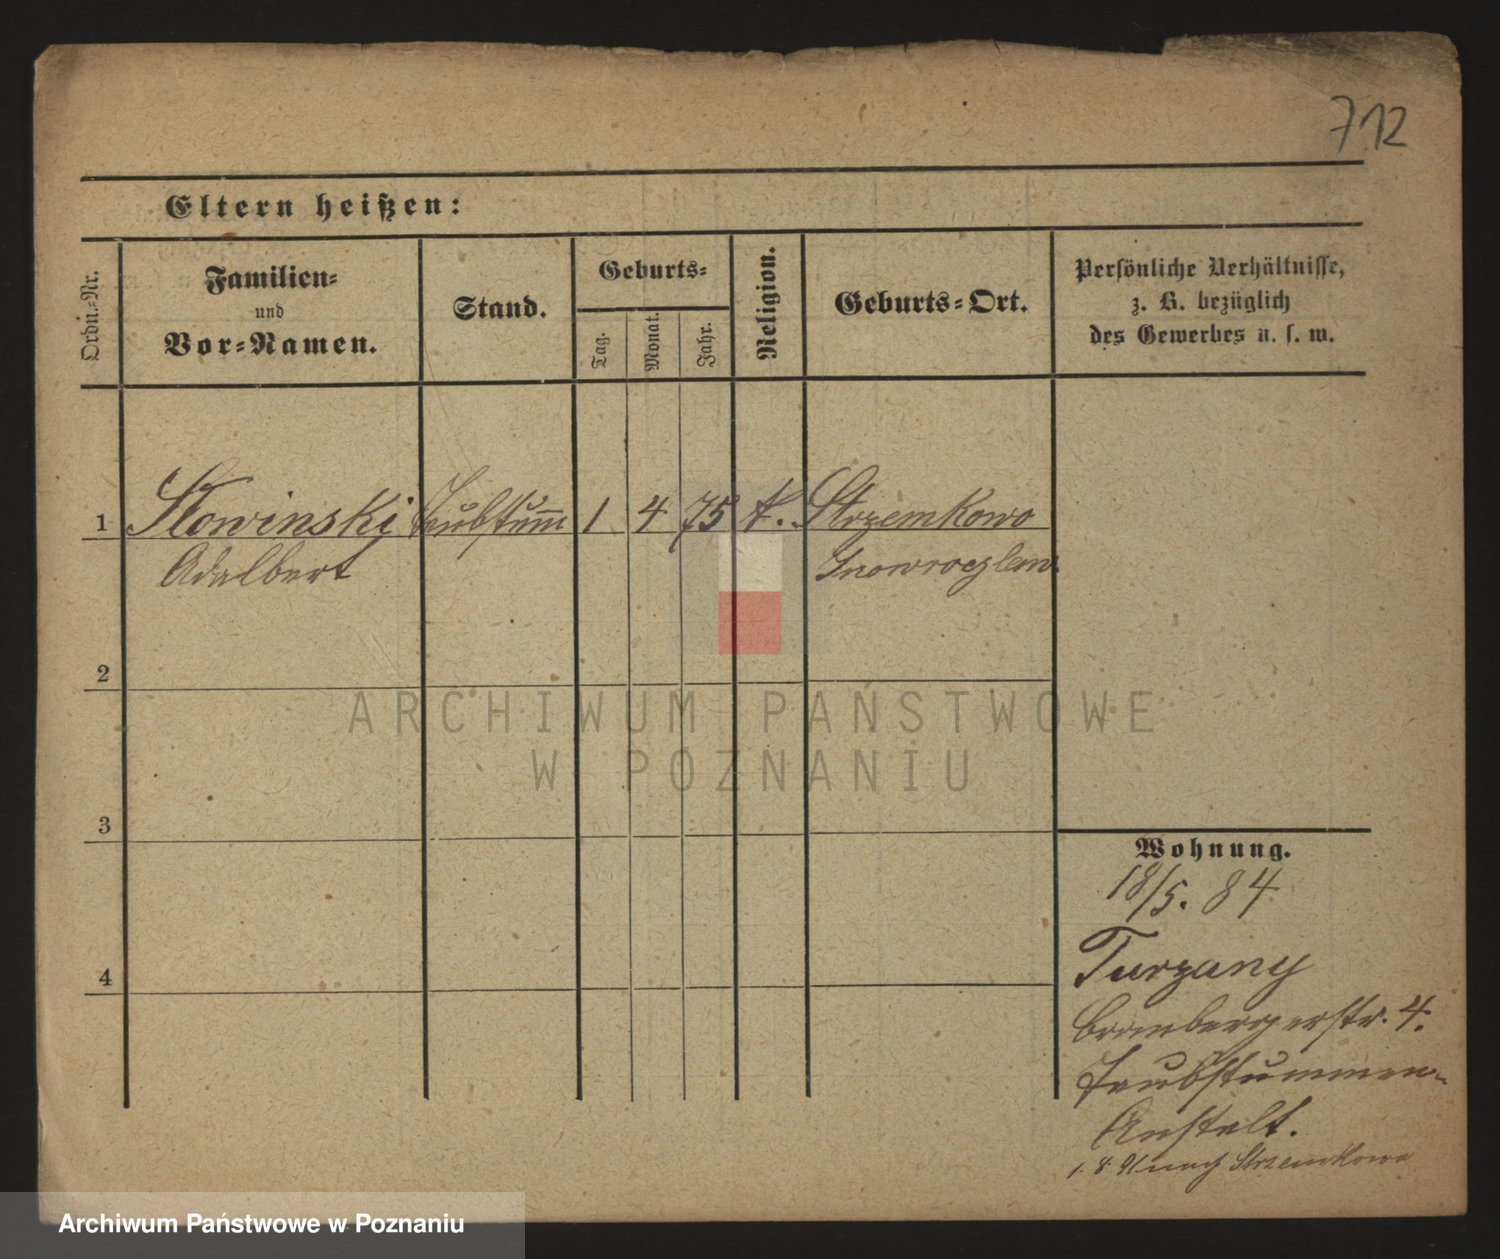 712
Eltern heißen:
Ordn.-Nr.
Familien-
und
Vor-Namen.
Stand.
Geburts-
Tag.
Monat.
Jahr.
Religion.
Geburts-Ort.
Persönliche Verhältnisse,
z. B. bezüglich
des Gewerbes u. s. w.
1 Słowinski Taubstumm 1 4 75 k. Strzemkowo
Adalbert Inowrazlaw.
2
3
4
Wohnung.
18/5. 84
Turzany
Brombergerstr. 4.
Taubstummen-
Anstalt.
1. 8. 91 nach Strzemkowo
ARCHIWUM PAŃSTWOWE
W POZNANIU
Archiwum Państwowe w Poznaniu